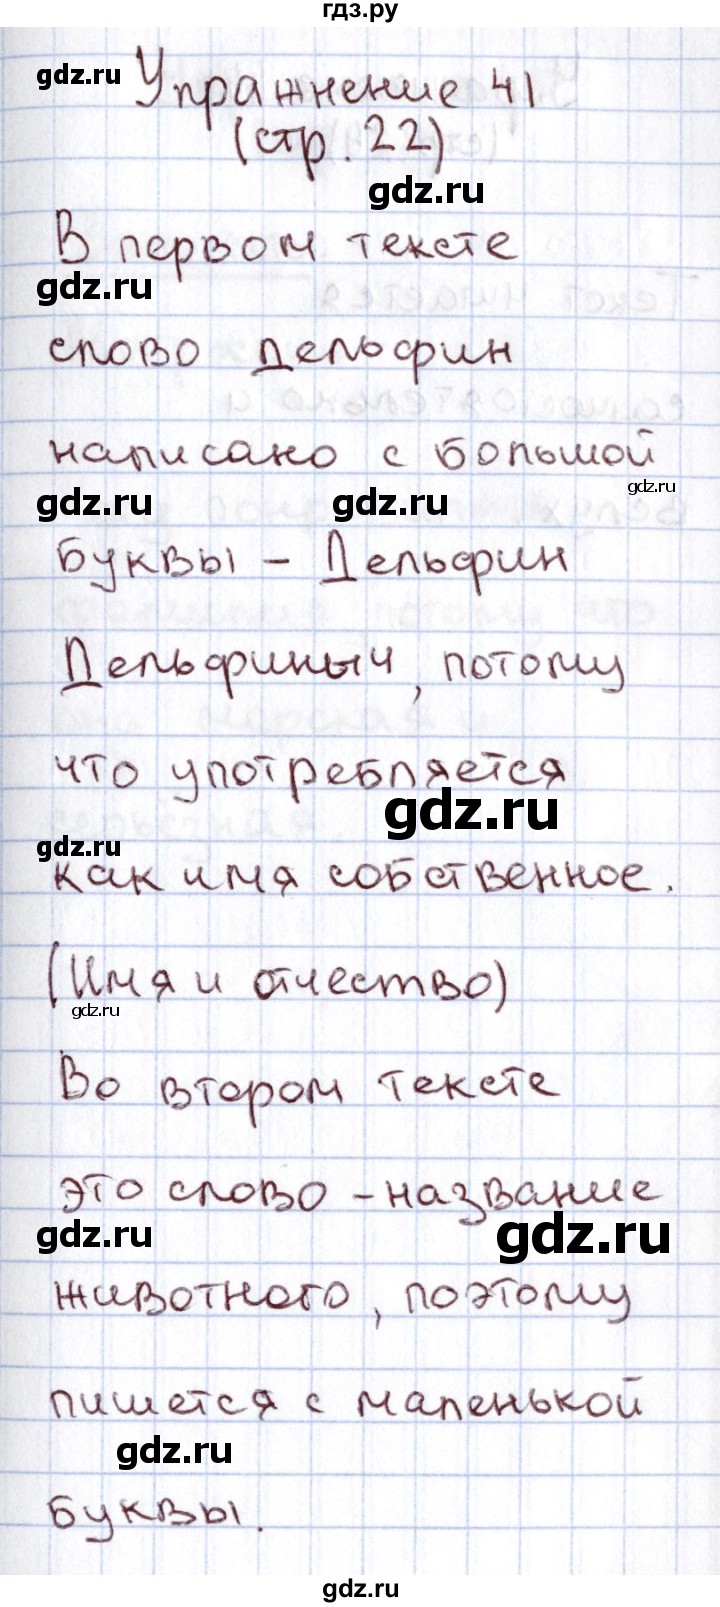 гдз.ру
gdz.ru
Упражнение 41
(стр. 22)
gdz.ru
В первом тексте
gdz.ru
слово дельфин
написано с большой
gdz.ru
gdz.ru
gdz.ru
буквы - Дельфин
Дельфиныч, потому
что употребляется
gdz.ru
gdz.ru
как имя собственное.
(Имя и отчество)
gdz.ru
Во втором тексте
это слово - название
gdz.ru
gdz.ru
животного, поэтому
пишется с маленькой
gdz.ru
буквы.
gdz.ru